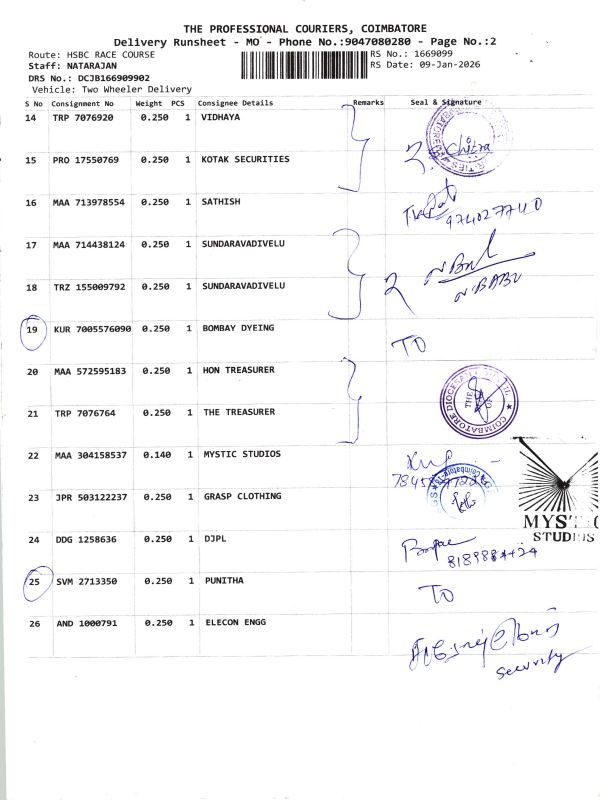 THE PROFESSIONAL COURIERS, COIMBATORE
Delivery Runsheet - MO - Phone No.:9047080280 - Page No.:2
Route: HSBC RACE COURSE
RS No.: 1669099
Staff: NATARAJAN
RS Date: 09-Jan-2026
DRS No.: DCJB166909902
Vehicle: Two Wheeler Delivery
S No Consignment No Weight PCS Consignee Details Remarks Seal & Signature
14 TRP 7076920 0.250 1 VIDHYA
2 Chitra
15 PRO 17550769 0.250 1 KOTAK SECURITIES
16 MAA 713978554 0.250 1 SATHISH
9740277740
17 MAA 714438124 0.250 1 SUNDARAVADIVELU
18 TRZ 155009792 0.250 1 SUNDARAVADIVELU
2 N BABU
19 KUR 7005576090 0.250 1 BOMBAY DYEING
TO
20 MAA 572595183 0.250 1 HON TREASURER
21 TRP 7076764 0.250 1 THE TREASURER
COIMBATORE DIOCESAN
THE
OF
22 MAA 304158537 0.140 1 MYSTIC STUDIOS
23 JPR 503122237 0.250 1 GRASP CLOTHING
Coimbatore-18
MYSTIC
STUDIOS
24 DDG 1258636 0.250 1 DJPL
25 SVM 2713350 0.250 1 PUNITHA
TO
26 AND 1000791 0.250 1 ELECON ENGG
Security